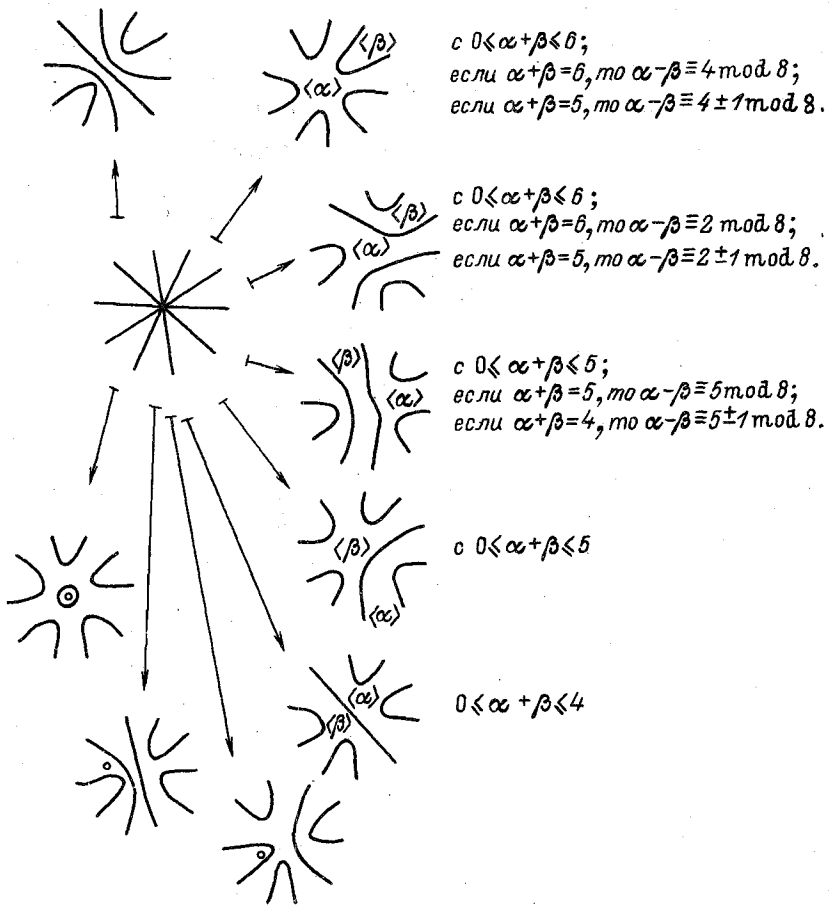 ⟨β⟩
⟨α⟩
с 0⩽α+β⩽6;
если α+β=6, то α-β≡4 mod 8;
если α+β=5, то α-β≡4±1 mod 8.
⟨β⟩
⟨α⟩
с 0⩽α+β⩽6;
если α+β=6, то α-β≡2 mod 8;
если α+β=5, то α-β≡2±1 mod 8.
⟨β⟩
⟨α⟩
с 0⩽α+β⩽5;
если α+β=5, то α-β≡5 mod 8;
если α+β=4, то α-β≡5±1 mod 8.
⟨β⟩
⟨α⟩
с 0⩽α+β⩽5
⟨α⟩
⟨β⟩
0⩽α+β⩽4